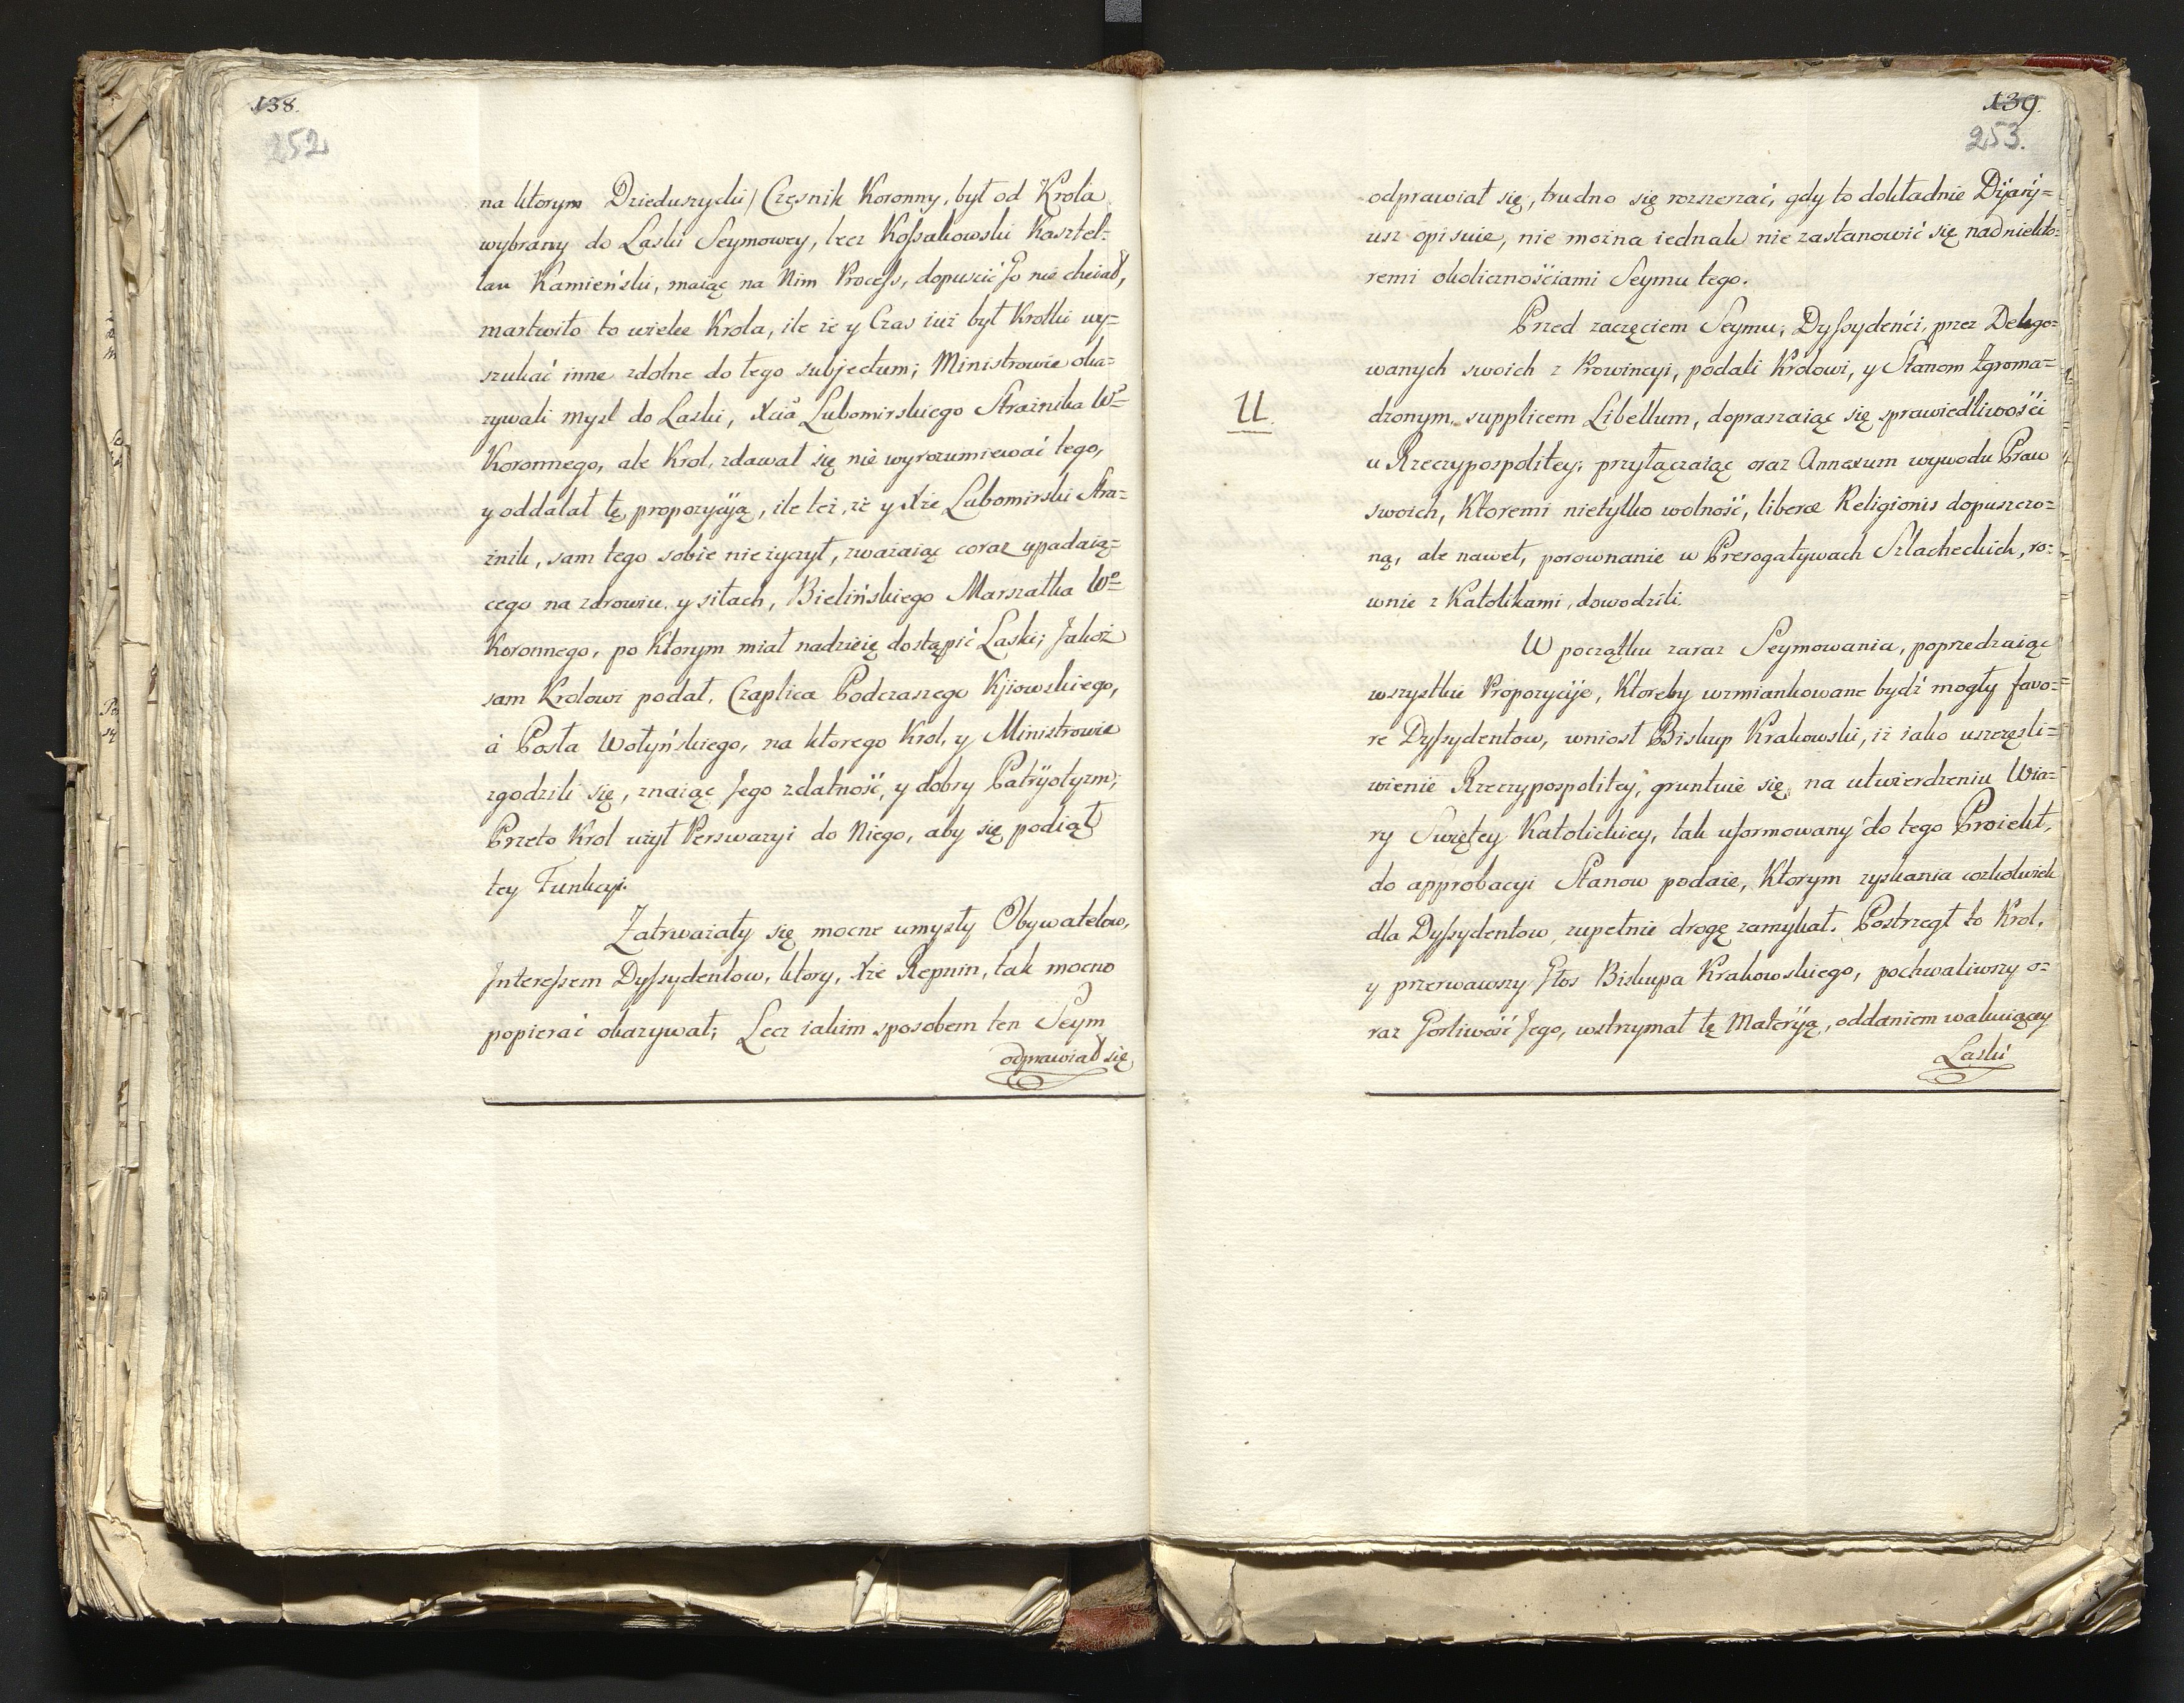 138.
252
na ktorym Dzieduszycki, Czesnik Koronny, był od Krola
wybrany do Laski Seymowey, lecz Kossakowski Kasztel=
lan Kamieński, maiąc na Nim Process, dopuscić Go nie chciał,
martwiło to wiele Krola, ile że y Czas iuż był krotki wy=
szukać inne zdolne do tego subjectum; Ministrowie oka=
zywali mysl do Laski, Xcia Lubomirskiego Strażnika Wo
Koronnego, ale Krol, zdawał się nie wyrozumiewać tego,
y oddalał tę propozycyją, ile też, że y Xże Lubomirski Stra=
żnik, sam tego sobie nie życzył, zważaiąc coraz upadaią=
cego na zdrowiu y siłach, Bielińskiego Marszałka Wo
Koronnego, po ktorym miał nadzieię dostąpić Laski; Jakoż
sam Krolowi podał, Czaplica Podczaszego Kjiowskiego,
à Posła Wołyńskiego, na ktorego Krol, y Ministrowie
zgodzili się, znaiąc Jego zdatność, y dobry Patryotyzm;
Przeto Krol użył Perswazyi do Niego, aby się podiął
tey Funkcyi.
Zatrważały się mocne umysły Obywatelow,
Interessem Dyssydentow, ktory, Xże Repnin, tak mocno
popierać okazywał; Lecz iakim sposobem ten Seym
odprawiał się
139.
253.
odprawiał się, trudno się rozszerzać, gdy to dokładnie Dÿarÿ=
usz opisuie, nie można iednak nie zastanowić się nad niekto=
remi okolicznościami Seymu tego.
Przed zaczęciem Seymu, Dyssydeńci, przez Delego=
wanych swoich z Prowincyi, podali Krolowi, y Stanom Zgroma=
U.
dzonym, supplicem Libellum, dopraszaiąc się sprawiedliwości
u Rzeczypospolitey; przyłączaiąc oraz Annexum wywodu Praw
swoich, Ktoremi nietylko wolność, liberæ Religionis dopuszczo=
ną, ale nawet, porownanie w Prerogatywach Szlacheckich, ro=
wnie z Katolikami, dowodzili.
W początku zaraz Seymowania, poprzedzaiąc
wszystkie Propozycije, Ktoreby wzmiankowane bydź mogły favo=
re Dyssydentow, wniosł Biskup Krakowski, iż iako uszczęsli=
wienie Rzeczypospolitey, gruntuie się, na utwierdzeniu Wia=
ry Swiętey Katolickiey, tak uformowany do tego Proiekt,
do approbacyi Stanow podaie, Ktorym zyskania cożkolwiek
dla Dyssydentow, zupełnie drogę zamykał. Postrzegł to Krol,
y przerwawszy Głos Biskupa Krakowskiego, pochwaliwszy o=
raz Gorliwość Jego, wstrzymał tę Materyą, oddaniem wakuiącey
Laski